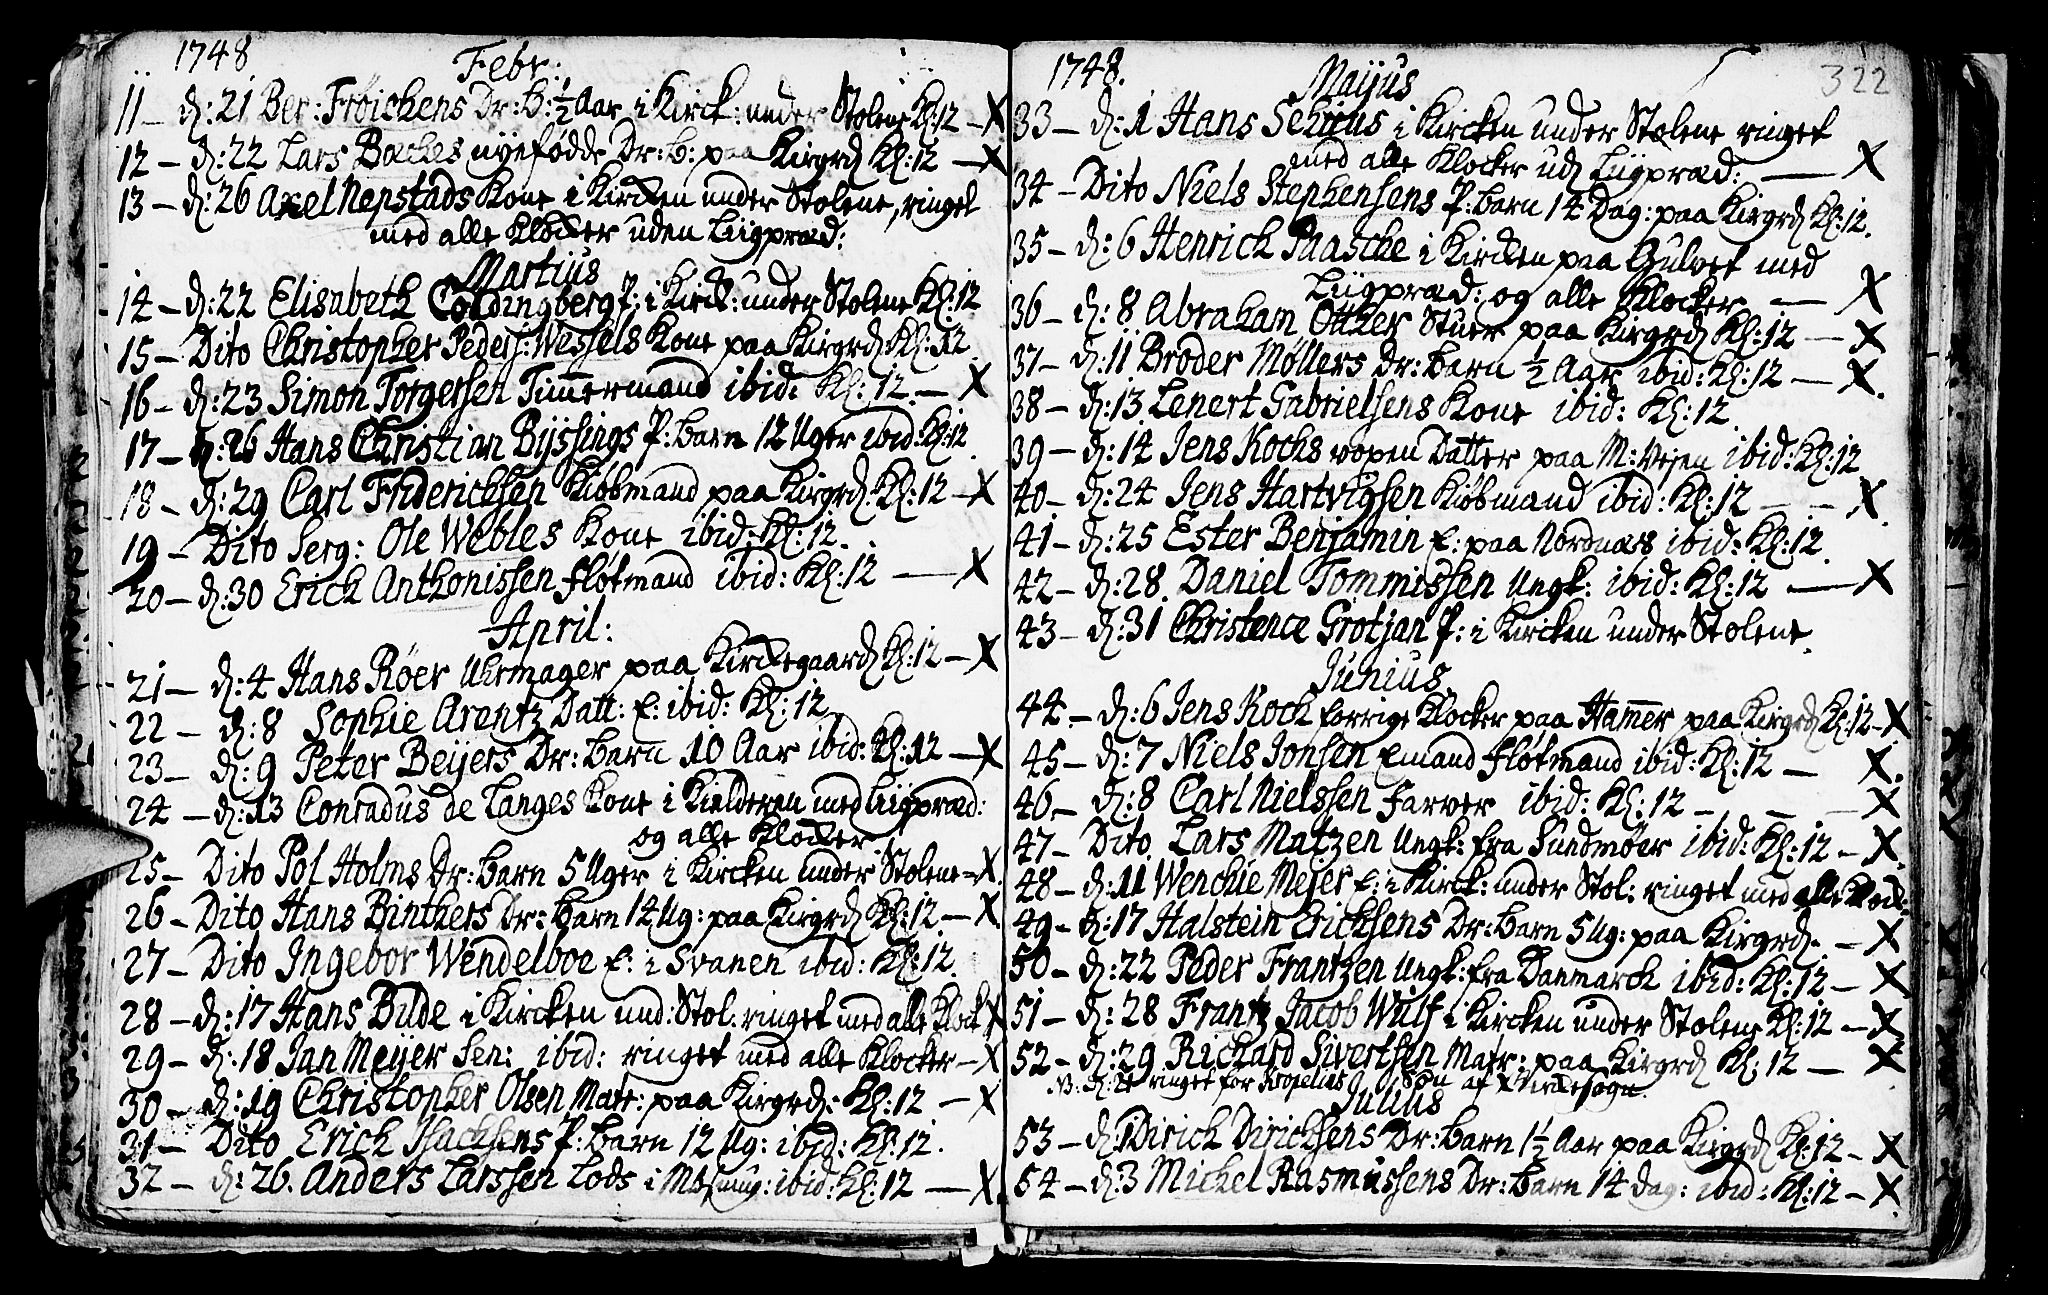 1748
Febr:
11 – d: 21 Ber: Frøichens Dr: B: ½ Aar i Kirck: under Stolene Kl: 12 – X
12 – d: 22 Lars Backes nyefødde Dr: B: paa Kirgrd Kl: 12 – X
13 – d: 26 Axel Nepstads Kone i Kircken under Stolene, ringet
med alle Klocker uden Liigpræd:
Martius
14 – d: 22 Elisabeth Coldingberg P: i Kirck: under Stolene Kl: 12
15 – Dito Christopher Peders: Wessels Kone paa Kirgrd Kl: 12
16 – d: 23 Simon Torgersen Timmermand ibid: Kl: 12 – X
17 – d: 26 Hans Christian Byssings P: barn 12 Uger ibid: Kl: 12
18 – d: 29 Carl Friderichsen Kiøbmand paa Kirgrd: Kl: 12 – X
19 – Dito Serg: Ole Webles Kone ibid: Kl: 12
20 – d: 30 Erich Anthonissen fløtmand ibid: Kl: 12 – X
April:
21 – d: 4 Hans Røer Uhrmager paa Kirckegaard Kl: 12 – X
22 – d: 8 Sophie Arentz Datt: E: ibid: Kl: 12
23 – d: 9 Peter Beijers Dr: barn 10 Aar ibid: Kl: 12 – X
24 – d: 13 Conradus de Langes Kone i Kielderen med Liigpræd:
og alle Klocker
25 – Dito Pol Holms Dr: barn 5 Uger i Kircken under Stolene – X
26 – Dito Hans Binthers Dr: barn 14 Ug: paa Kirgrd Kl: 12 – X
27 – Dito Ingebor Wendelboe E: i Svanen ibid: Kl: 12
28 – d: 17 Hans Bude i Kircken und: Stol. ringet med alle Klock X
29 – d: 18 Jan Meijer Sen: ibid: ringet med alle Klocker – X
30 – d: 19 Christopher Olsen Matr: paa Kirgrd: Kl: 12 – X
31 – Dito Erich Isachsens P: barn 12 Ug: ibid: Kl: 12.
32 – d: 26. Anders Larssen Lods i ibid: Kl: 12 – X
1748.
322
Maijus
33 – d: 1 Hans Sehuus i Kircken under Stolene ringet
med alle Klocker ud Liigpræd: – X
34 – Dito Niels Stephensens P: barn 14 Dag: paa Kirgrd Kl: 12.
35 – d: 6 Henrich Paasche i Kircken paa Gulvet med
Liigpræd: og alle Klocker – X
36 – d: 8 Abraham Otther Stuer paa Kirgrd Kl: 12 – X
37 – d: 11 Broder Møllers Dr: barn ½ Aar ibid: Kl: 12 – X
38 – d: 13 Lenert Gabrielsens Kone ibid: Kl: 12
39 – d: 14 Jens Kochs voxen Datter paa M: Vejen ibid: Kl: 12
40 – d: 24 Jens Hartvigsen Kiøbmand ibid: Kl: 12 – X
41 – d: 25 Ester Benjamin E: paa Nordnæs ibid: Kl: 12
42 – d: 28. Daniel Tommissen Ungk: ibid: Kl: 12 – X
43 – d: 31 Christence Grotjan P: i Kircken under Stolene
Junius
44 – d: 6 Jens Koch forrige Klocker paa Hamer paa Kirgrd Kl: 12 – X
45 – d: 7 Niels Jonsen Emand fløtmand ibid: Kl: 12 – X
46 – d: 8 Carl Nielssen Farver ibid: Kl: 12 – X
47 – Dito Lars Matzen Ungk: fra Sundmøer ibid: Kl: 12 – X
48 – d: 11 Wenchie Mejer E: i Kirck: under Stol: ringet med alle Klock:
49 – d: 17 Halstein Ericksens Dr: barn 5 Ug: paa Kirgrd: – X
50 – d: 22 Peder Frantzen Ungk: fra Danmarck ibid: Kl: 12 – X
51 – d: 28 Frantz Jacob Wulf i Kircken under Stolene Kl: 12 – X
52 – d: 29 Richard Sivertsen Matr: paa Kirgrd Kl: 12 – X
NB: d: 21 ringet for Kropelins Søn af Kirckesogn.
Julius
53 – d: 1 Dirich Dirichsens Dr: barn 1½ Aar paa Kirgrd Kl: 12 – X
54 – d: 3 Michel Rasmussens Dr: barn 14 dag: ibid: Kl: 12 – X